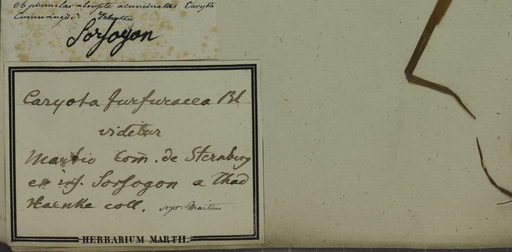 ob pinnulas abrupte acuminatas Caryota
Sorsogon
Caryota furfuracea Bl
videtur
Martio Com. de Sternberg
ex ins. Sorsogon a Thad
Haenke coll. Martius
HERBARIUM MARTII.